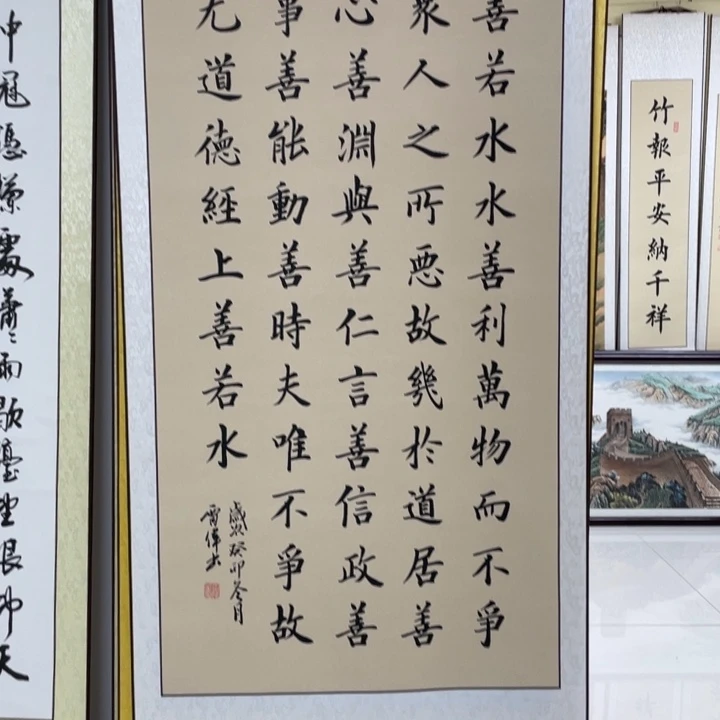 竹報平安納千祥
善若水水善利萬物而不爭
衆人之所惡故幾於道居善
心善淵與善仁言善信政善
事善能動善時夫唯不爭故
尤道德經上善若水
歲次癸卯冬月
冲冠憑欄處瀟瀟雨歇擡望眼仰天